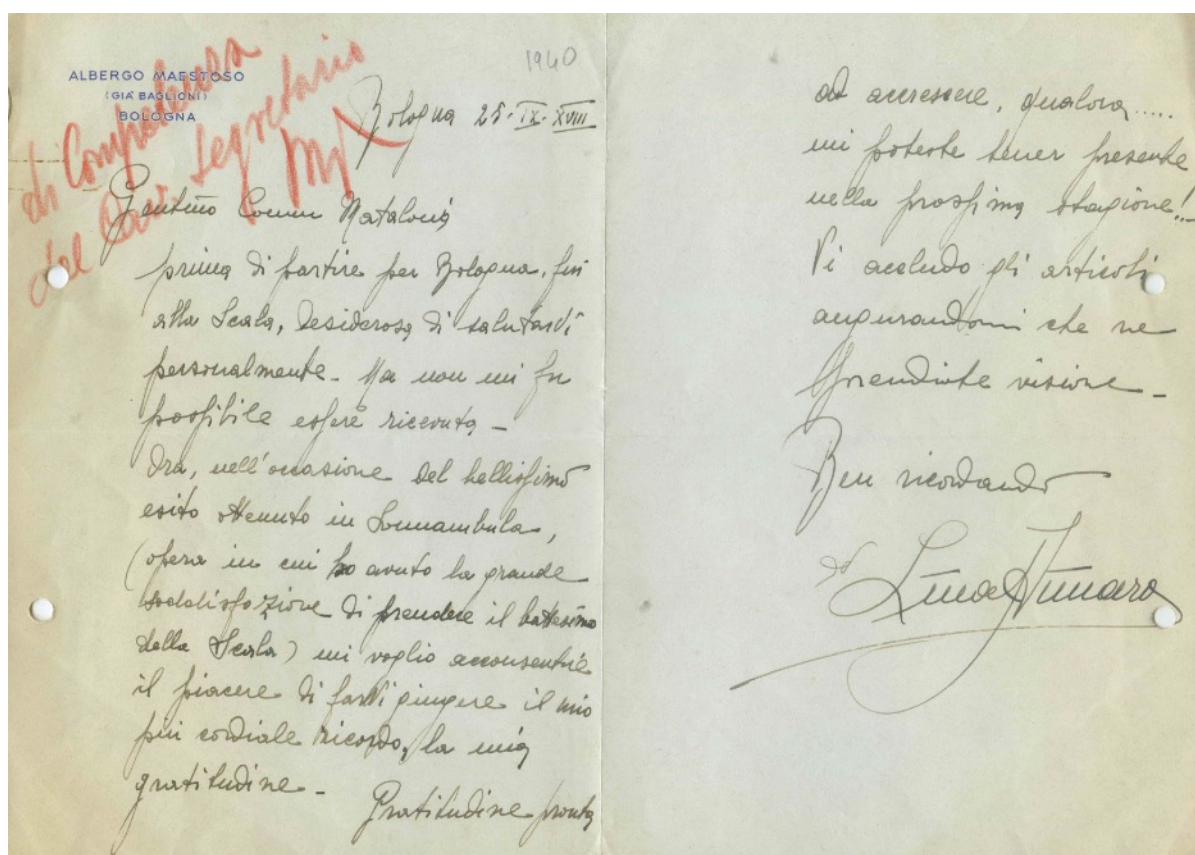 ALBERGO MAESTOSO
(GIÀ BAGLIONI)
BOLOGNA
1940
di Competenza
del Cav. Segretario
Bologna 25-IX-XVIII
Gentmo Comm Mataloni
prima di partire per Bologna, fui
alla Scala, desiderosa di salutarVi
personalmente - Ma non mi fu
possibile essere ricevuta -
Ora, nell'occasione del bellissimo
esito ottenuto in Sonnambula,
(opera in cui ho avuto la grande
soddisfazione di prendere il battesimo
della Scala) mi voglio acconsentire
il piacere di farVi giungere il mio
più cordiale ricordo, la mia
gratitudine -
Gratitudine pronta
ad accrescere, qualora.....
mi poteste tener presente
nella prossima stagione!..
Vi accludo gli articoli
augurandomi che ne
prendiate visione -
Ben ricordando
Lina Aimaro